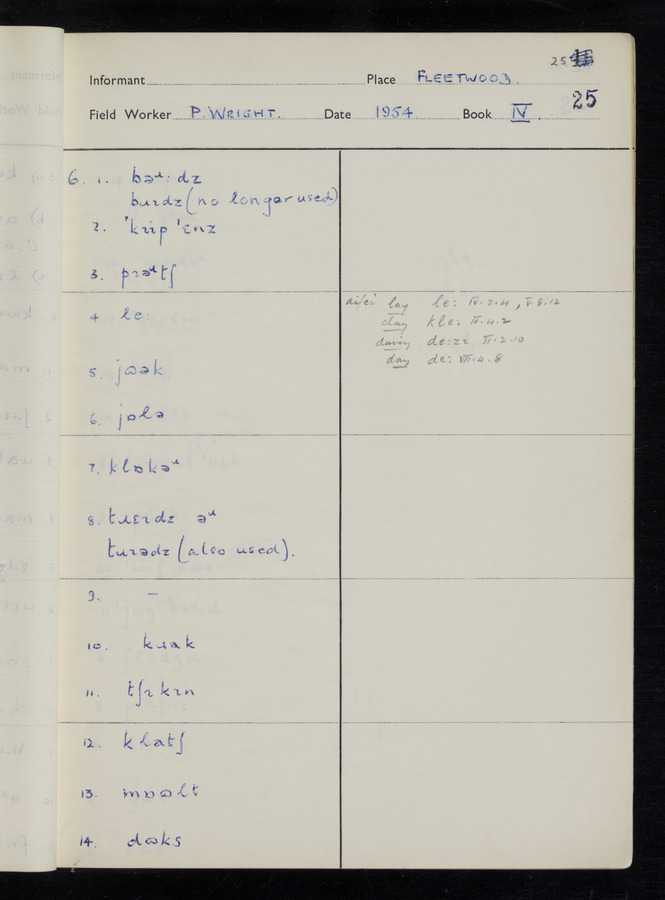 25
Informant Place FLEETWOOD.
25
Field Worker P. WRIGHT. Date 1954 Book IV.
6. 1. bəʴ:dz
buɪdz (no longer used)
2. 'kɹɪp 'ɛnz
3. pɹəʴtʃ
4. le:
5. jɷək
6. jɒlə
7. klɒkəʴ
8. tɹɛɪdz əʴ
tuɪədz (also used).
9. –
10. kɹak
11. tʃɪkɪn
12. klatʃ
13. mɒɷlt
14. dɷks
ai/ei lay le: IV.2.4, V.8.12
clay kle: IV.4.2
dairy de:ɾɪ II.2.10
day de: VII.4.8